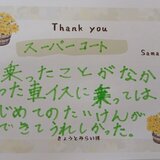 Thank you
スーパーコート
Sama
乗ったことがなか
った車イスに乗っては
じめてのたいけんが
できてうれしかった。
きょうとみらい校